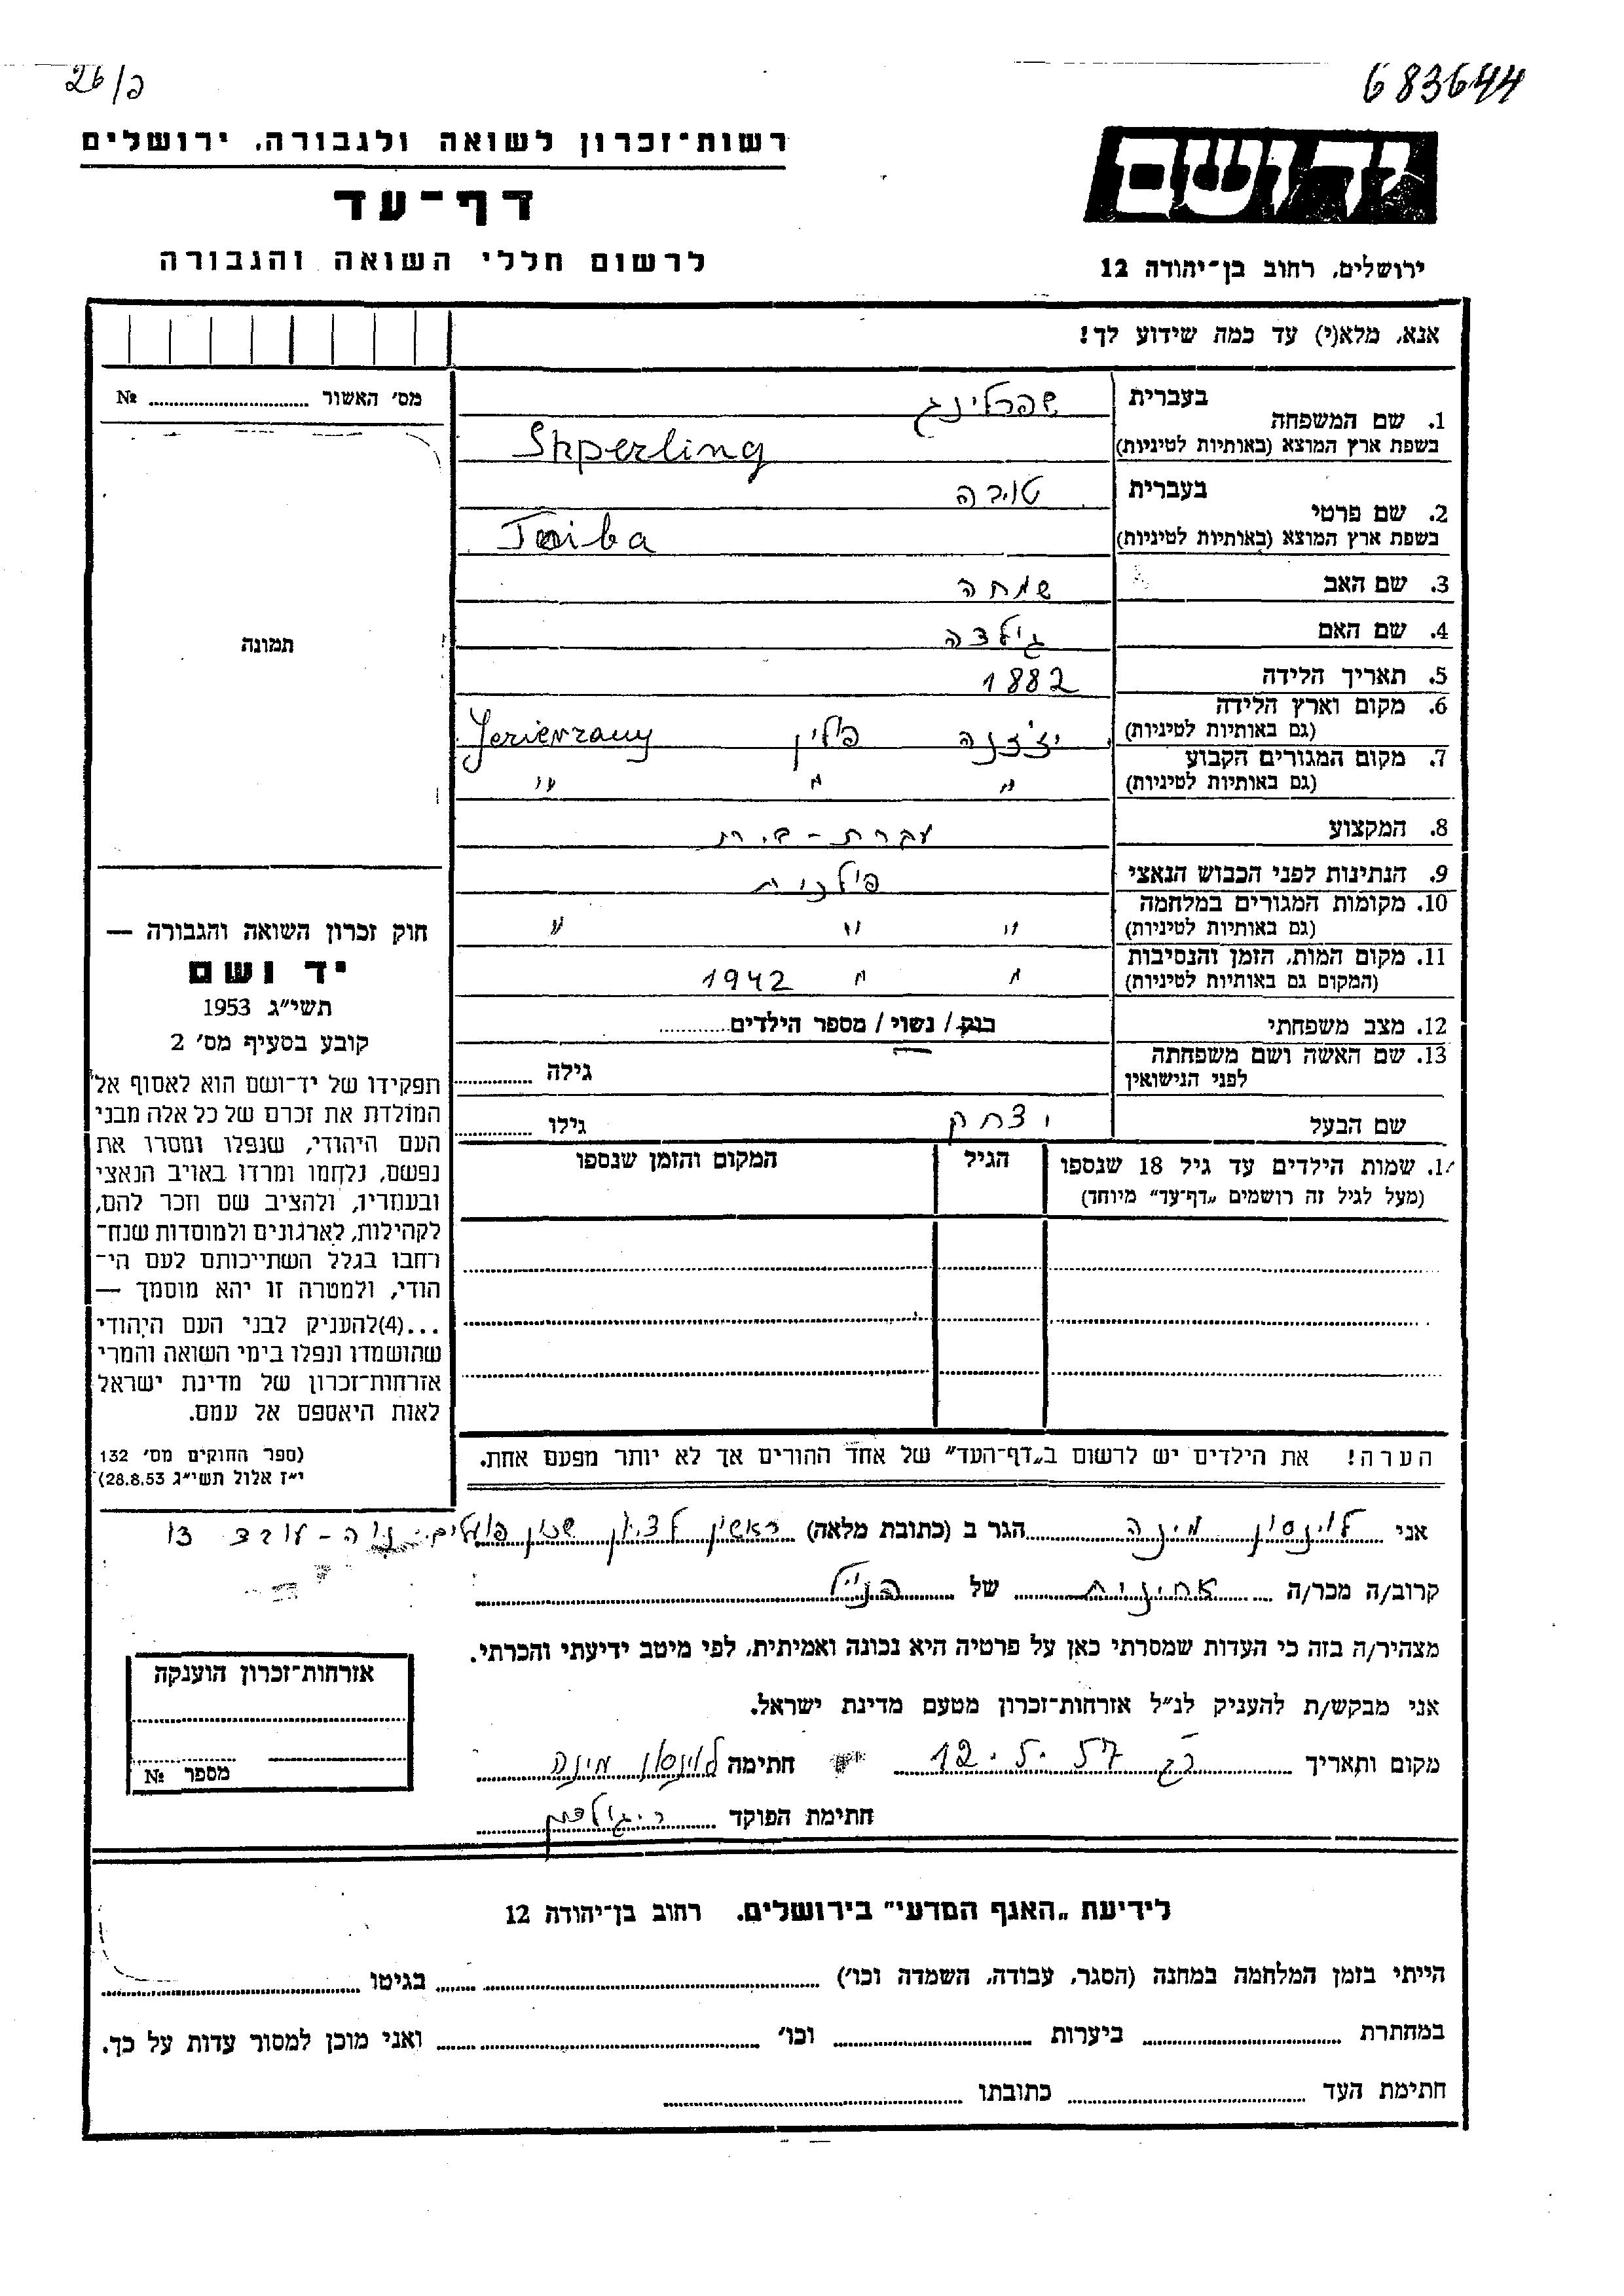 26/פ
683644
רשות־זכרון לשואה ולגבורה, ירושלים
דף־עד
לרשום חללי השואה והגבורה
יד ושם
ירושלים, רחוב בן־יהודה 12
אנא, מלא(י) עד כמה שידוע לך!
מס׳ האשור № 
תמונה
1. שם המשפחה
בעברית שפרלינג
בשפת ארץ המוצא (באותיות לטיניות) Shperling
2. שם פרטי
בעברית טויבה
בשפת ארץ המוצא (באותיות לטיניות) Toiba
3. שם האב שמחה
4. שם האם
5. תאריך הלידה 1882
6. מקום וארץ הלידה
(גם באותיות לטיניות) פולין
7. מקום המגורים הקבוע
(גם באותיות לטיניות) " " "
8. המקצוע עקרת-בית
9. הנתינות לפני הכבוש הנאצי פולנית
10. מקומות המגורים במלחמה
(גם באותיות לטיניות) " " "
11. מקום המות, הזמן והנסיבות
(המקום גם באותיות לטיניות) " " 1942
12. מצב משפחתי רוק/ נשוי/ מספר הילדים
13. שם האשה ושם משפחתה
לפני הנישואין גילה
שם הבעל יצחק גילו
1. שמות הילדים עד גיל 18 שנספו
(מעל לגיל זה רושמים „דף־עד” מיוחד)
הגיל
המקום והזמן שנספו
חוק זכרון השואה והגבורה —
יד ושם
תשי״ג 1953
קובע בסעיף מס׳ 2
תפקידו של יד־ושם הוא לאסוף אל
המולדת את זכרם של כל אלה מבני
העם היהודי, שנפלו ומסרו את
נפשם, נלחמו ומרדו באויב הנאצי
ובעוזריו, ולהציב שם וזכר להם,
לקהילות, לארגונים ולמוסדות שנח־
רחבו בגלל השתייכותם לעם הי־
הודי, ולמטרה זו יהא מוסמך —
...(4)להעניק לבני העם היהודי
שהושמדו ונפלו בימי השואה והמרי
אזרחות־זכרון של מדינת ישראל
לאות היאספם אל עמם.
(ספר החוקים מס׳ 132
י״ז אלול תשי״ג 28.8.53)
הערה! את הילדים יש לרשום ב„דף־העד” של אחד ההורים אך לא יותר מפעם אחת.
אני לוינסון מינה הגר ב (כתובת מלאה) ראשון לציון שכון פועלים
קרוב/ה מכר/ה אחינית של הנ״ל
מצהיר/ה בזה כי העדות שמסרתי כאן על פרטיה היא נכונה ואמיתית, לפי מיטב ידיעתי והכרתי.
אני מבקש/ת להעניק לנ״ל אזרחות־זכרון מטעם מדינת ישראל.
מקום ותאריך 12.5.57 חתימה לוינסון מינה
חתימת הפוקד
אזרחות־זכרון הוענקה
מספר №
לידיעת „האגף המדעי” בירושלים, רחוב בן־יהודה 12
הייתי בזמן המלחמה במחנה (הסגר, עבודה, השמדה וכו׳) בגיטו
במחתרת ביערות וכו׳ ואני מוכן למסור עדות על כך.
חתימת העד כתובתו